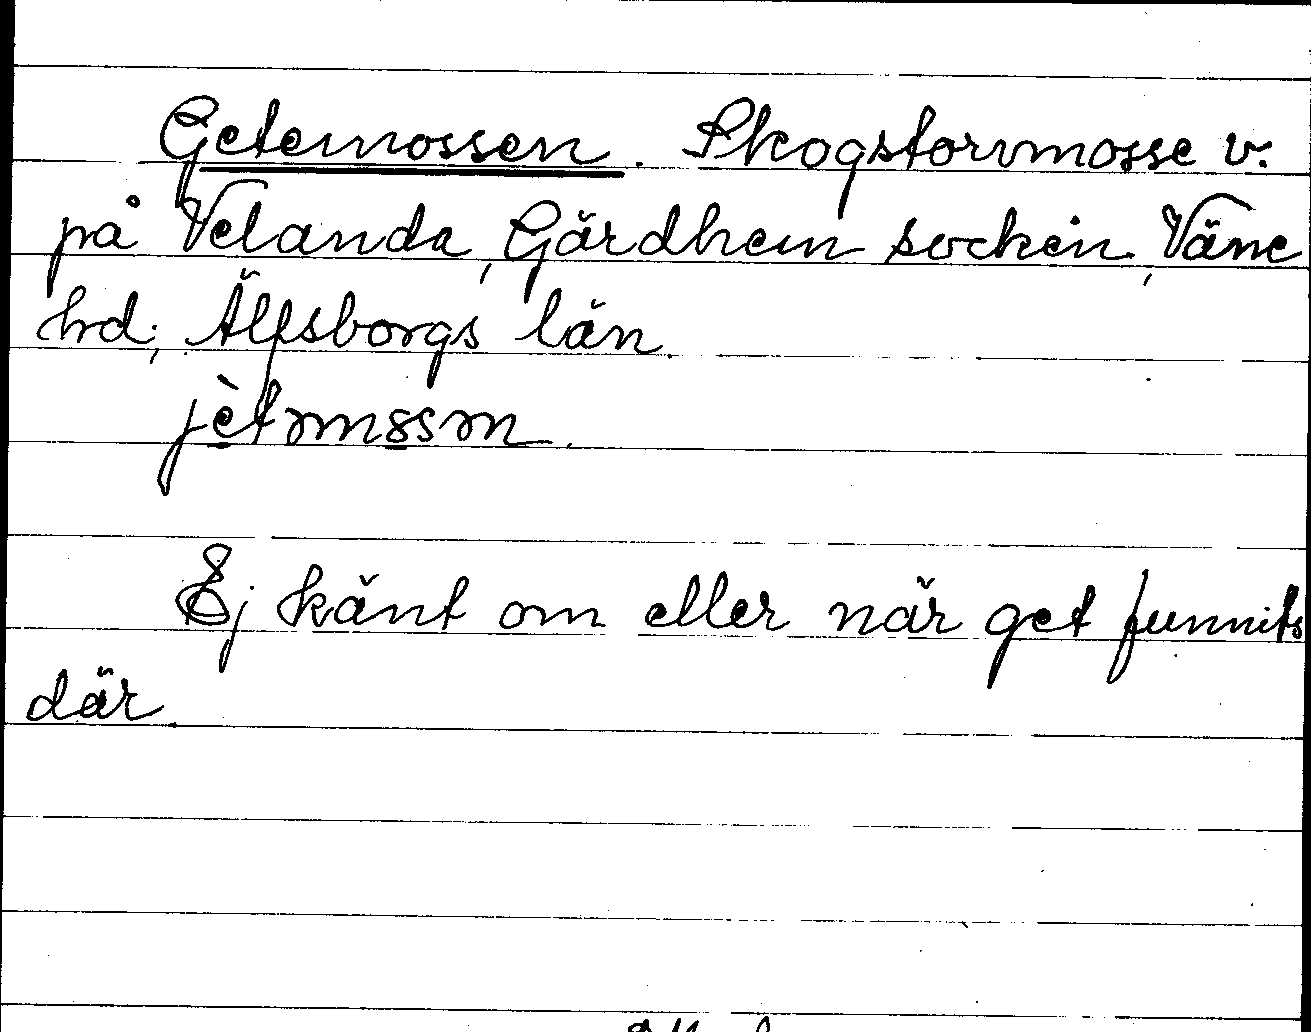 Getemossen. Skogstorvmosse v.
på Velanda, Gärdhem socken, Väne
hrd, Älfsborgs län.
Ej känt om eller när get funnits
där.